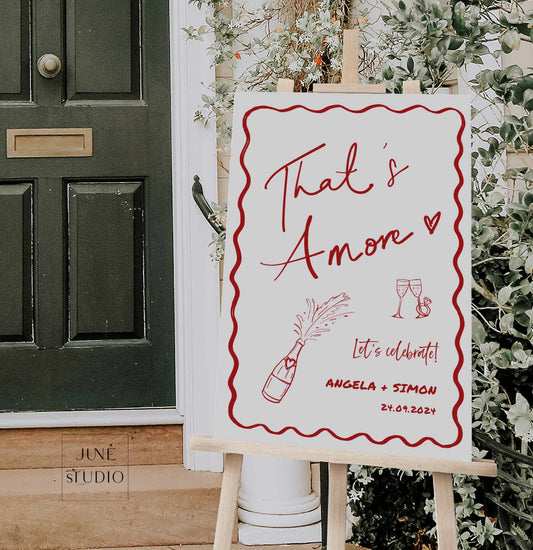 That's
Amore
Let's celebrate!
ANGELA + SIMON
24.09.2024
JUNE
STUDIO